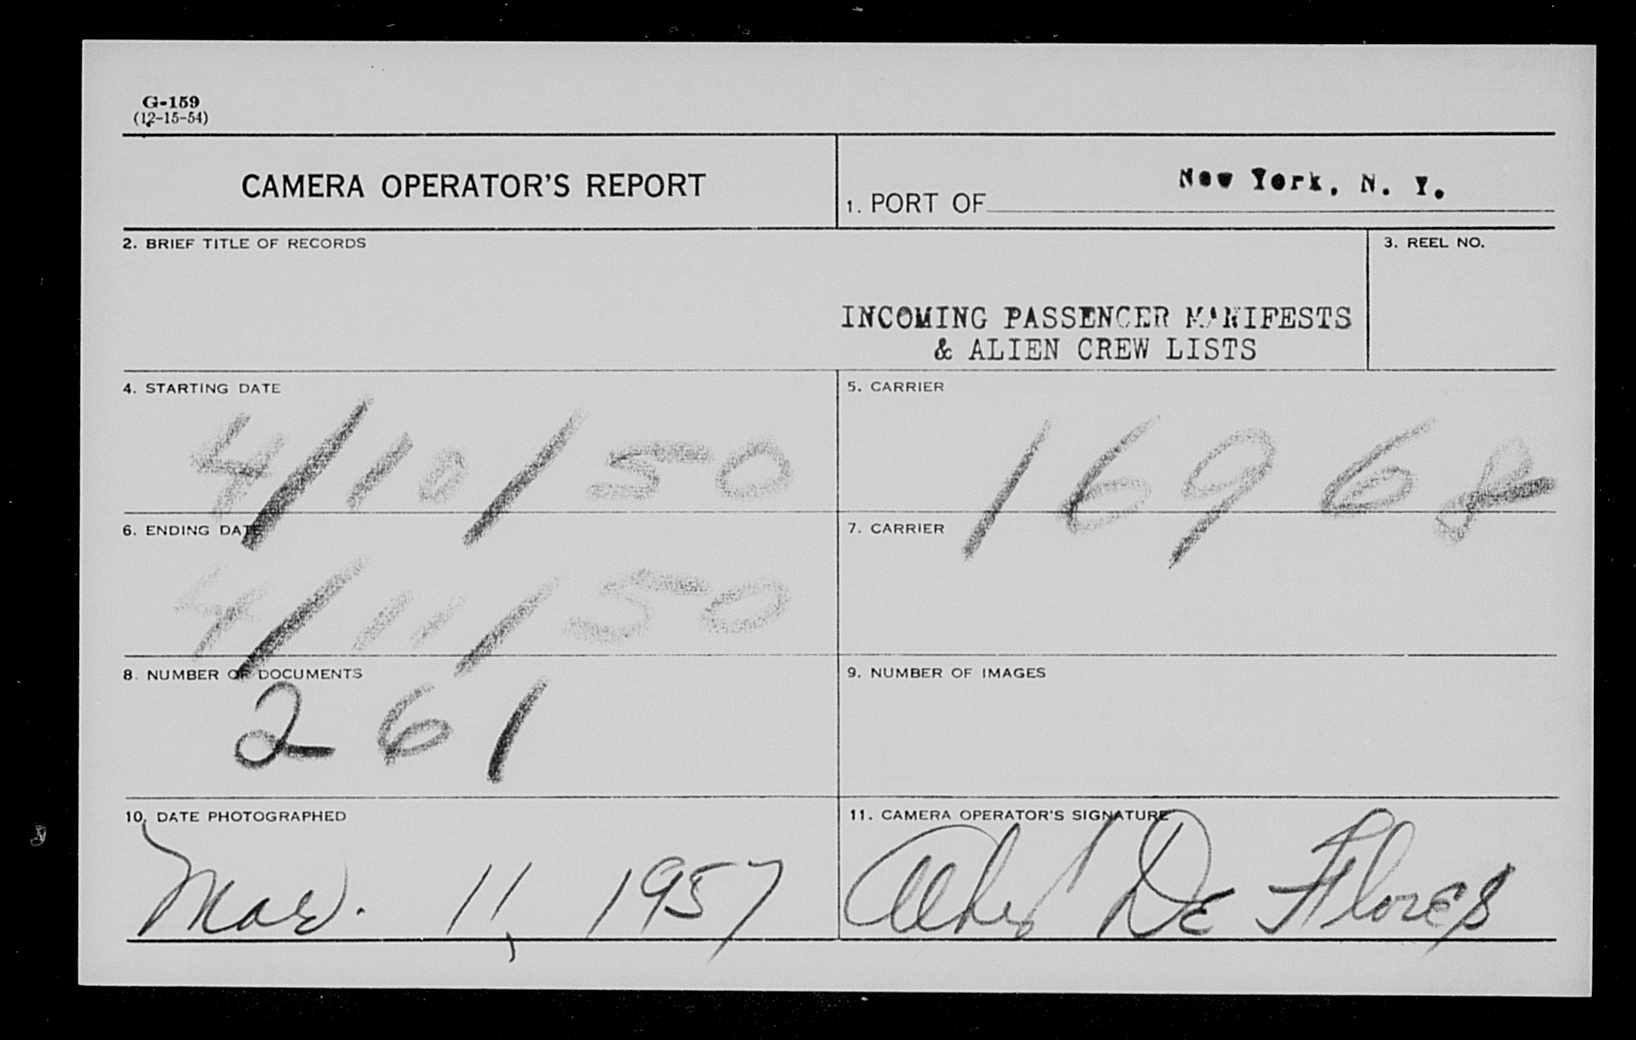 G-159
(12-15-54)
CAMERA OPERATOR'S REPORT
1. PORT OF New York, N. Y.
2. BRIEF TITLE OF RECORDS
3. REEL NO.
INCOMING PASSENGER MANIFESTS
& ALIEN CREW LISTS
4. STARTING DATE
4/10/50
5. CARRIER
16968
6. ENDING DATE
4/11/50
7. CARRIER
8. NUMBER OF DOCUMENTS
261
9. NUMBER OF IMAGES
10. DATE PHOTOGRAPHED
Mar. 11, 1957
11. CAMERA OPERATOR'S SIGNATURE
De Flores